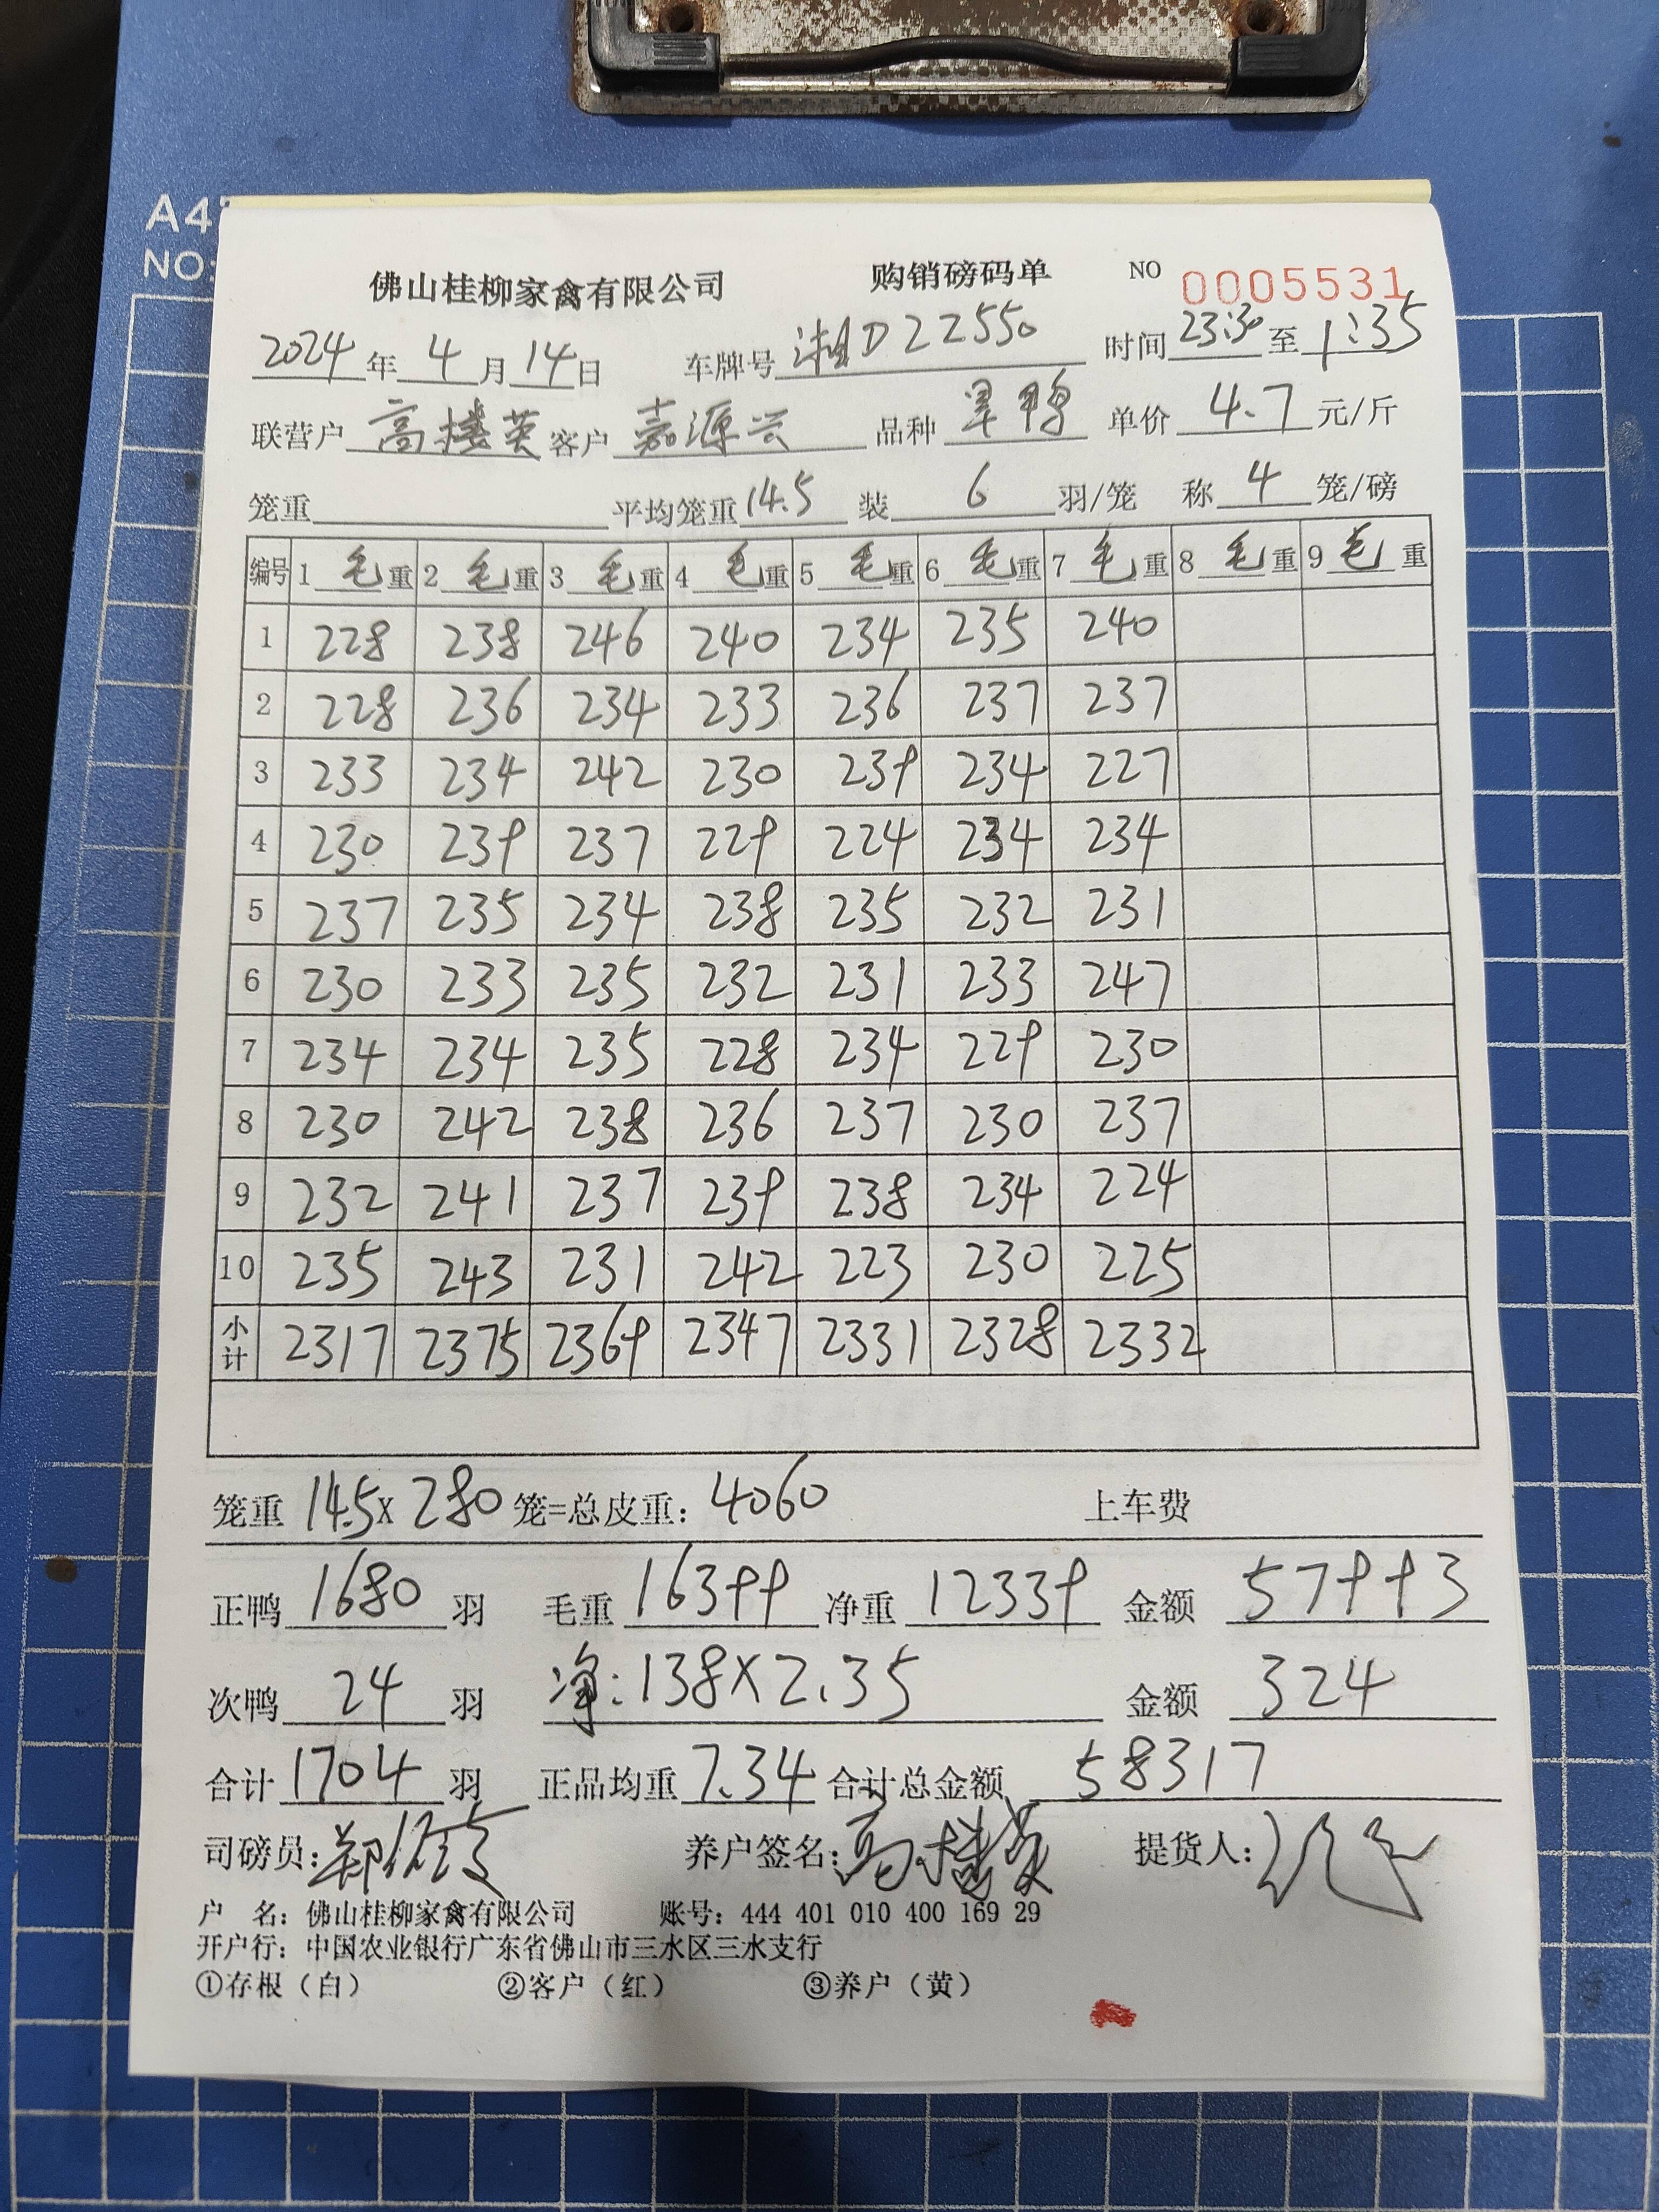 A4
NO:
佛山桂柳家禽有限公司 购销磅码单 NO 0005531
2024年4月14日 车牌号 湘D22550 时间 23:30 至 1:35
联营户 高楼英 客户 嘉源兴 品种 旱鸭 单价 4.7 元/斤
笼重 平均笼重 14.5 装 6 羽/笼 称 4 笼/磅
编号 1 毛重 2 毛重 3 毛重 4 毛重 5 毛重 6 毛重 7 毛重 8 毛重 9 毛重
1 228 238 246 240 234 235 240
2 228 236 234 233 236 237 237
3 233 234 242 230 239 234 227
4 230 239 237 229 224 234 234
5 237 235 234 238 235 232 231
6 230 233 235 232 231 233 247
7 234 234 235 228 234 229 230
8 230 242 238 236 237 230 237
9 232 241 237 239 238 234 224
10 235 243 231 242 223 230 225
小计 2317 2375 2369 2347 2331 2328 2332
笼重 14.5x 280 笼=总皮重: 4060 上车费
正鸭 1680 羽 毛重 16399 净重 12339 金额 57993
次鸭 24 羽 净:138X2.35 金额 324
合计 1704 羽 正品均重 7.34 合计总金额 58317
司磅员: 养户签名:高楼英 提货人:
户 名: 佛山桂柳家禽有限公司 账号: 444 401 010 400 169 29
开户行: 中国农业银行广东省佛山市三水区三水支行
①存根（白） ②客户（红） ③养户（黄）